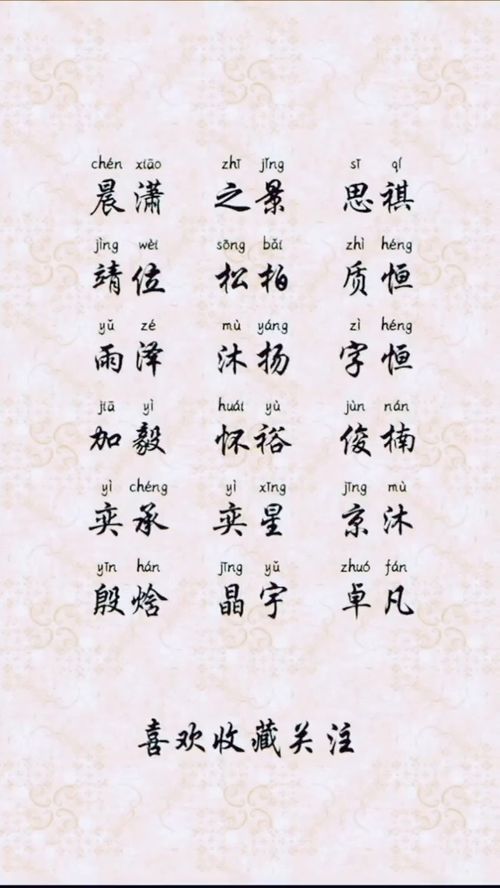 chén xiāo zhī jǐng sī qí
晨潇 之景 思祺
jìng wèi sōng bǎi zhì héng
靖位 松柏 质恒
yǔ zé mù yáng zì héng
雨泽 沐扬 字恒
jiā yì huái yù jùn nán
加毅 怀裕 俊楠
yì chéng yì xīng jīng mù
奕承 奕星 京沐
yīn hán jīng yǔ zhuó fán
殷焓 晶宇 卓凡
喜欢收藏关注